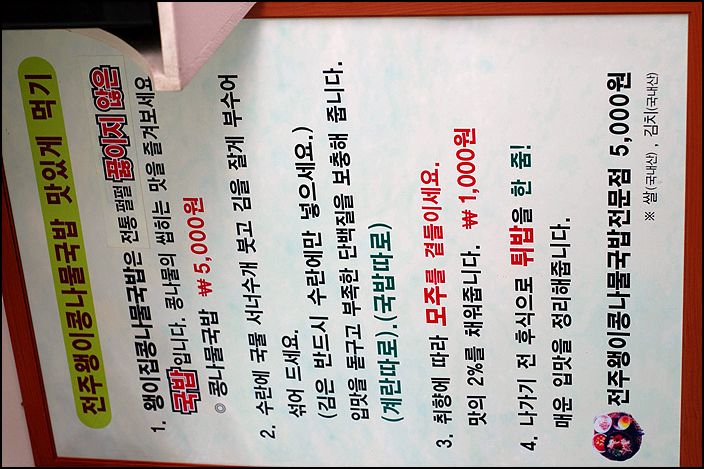 전주왱이콩나물국밥 맛있게 먹기
1. 왱이집콩나물국밥은 전통 펄펄 끓이지 않은
국밥입니다. 콩나물의 씹히는 맛을 즐겨보세요
◎ 콩나물국밥 ₩5,000원
2. 수란에 국물 서너수개 붓고 김을 잘게 부수어
섞어 드세요.
(김은 반드시 수란에만 넣으세요.)
입맛을 돋구고 부족한 단백질을 보충해 줍니다.
(계란따로).(국밥따로)
3. 취향에 따라 모주를 곁들이세요.
맛의 2%를 채워줍니다. ₩1,000원
4. 나가기 전 후식으로 튀밥을 한 줌!
매운 입맛을 정리해줍니다.
전주왱이콩나물국밥전문점 5,000원
※ 쌀(국내산) , 김치(국내산)